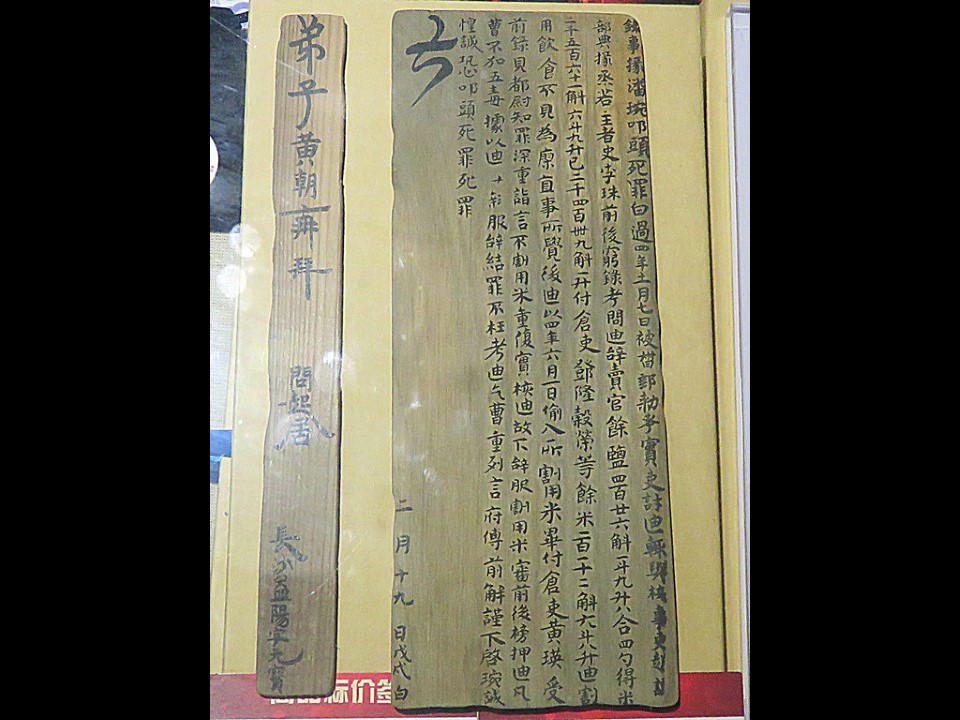 錄事掾潘琬叩頭死罪白過四年十一月七日被督郵勑考實吏許迪輒與核事吏
部典掾烝若主者史李珠前後窮錄考問迪辭賣官餘鹽四百廿六斛一斗九升八合四勺得米
二千五百六十一斛六斗九升已二千四百卌九斛一升付倉吏鄧隆穀榮等餘米一百一十二斛六斗八升迪割
用飲食不見為廖直事所覺後迪以四年六月一日偷入所割用米畢付倉吏黃瑛受
前錄見都尉知罪深重詣言不割用米重復實核迪故下辭服割用米審前後榜押迪凡
曹不加五毒據以迪服辭結罪不枉考迪乞曹重列言府傅前解謹下啓琬誠
惶誠恐叩頭死罪死罪
二月十九日戊戌白
弟子黃朝再拜 問起居 長沙益陽字元寶
标价签